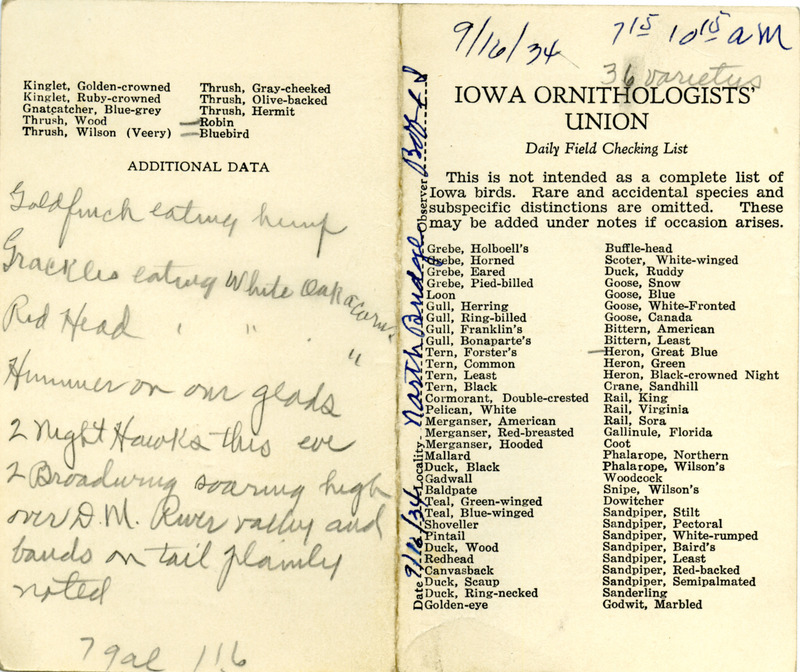 Kinglet, Golden-crowned
Kinglet, Ruby-crowned
Gnatcatcher, Blue-grey
Thrush, Wood
Thrush, Wilson (Veery)
Thrush, Gray-cheeked
Thrush, Olive-backed
Thrush, Hermit
Robin
Bluebird
ADDITIONAL DATA
Goldfinch eating hemp
Grackles eating White Oak acorns
Red Head " " "
Hummer on our glads
2 Night Hawks this eve
2 Broadwing soaring high
over D.M. River valley and
bands on tail plainly
noted
7 gal 11.6
9/16/34 7 15 10 15 a M
36 varieties
IOWA ORNITHOLOGISTS'
UNION
Daily Field Checking List
This is not intended as a complete list of
Iowa birds. Rare and accidental species and
subspecific distinctions are omitted. These
may be added under notes if occasion arises.
Date 9/16/34 Locality North Bridge Observer
Grebe, Holboell's
Grebe, Horned
Grebe, Eared
Grebe, Pied-billed
Loon
Gull, Herring
Gull, Ring-billed
Gull, Franklin's
Gull, Bonaparte's
Tern, Forster's
Tern, Common
Tern, Least
Tern, Black
Cormorant, Double-crested
Pelican, White
Merganser, American
Merganser, Red-breasted
Merganser, Hooded
Mallard
Duck, Black
Gadwall
Baldpate
Teal, Green-winged
Teal, Blue-winged
Shoveller
Pintail
Duck, Wood
Redhead
Canvasback
Duck, Scaup
Duck, Ring-necked
Golden-eye
Buffle-head
Scoter, White-winged
Duck, Ruddy
Goose, Snow
Goose, Blue
Goose, White-Fronted
Goose, Canada
Bittern, American
Bittern, Least
Heron, Great Blue
Heron, Green
Heron, Black-crowned Night
Crane, Sandhill
Rail, King
Rail, Virginia
Rail, Sora
Gallinule, Florida
Coot
Phalarope, Northern
Phalarope, Wilson's
Woodcock
Snipe, Wilson's
Dowitcher
Sandpiper, Stilt
Sandpiper, Pectoral
Sandpiper, White-rumped
Sandpiper, Baird's
Sandpiper, Least
Sandpiper, Red-backed
Sandpiper, Semipalmated
Sanderling
Godwit, Marbled